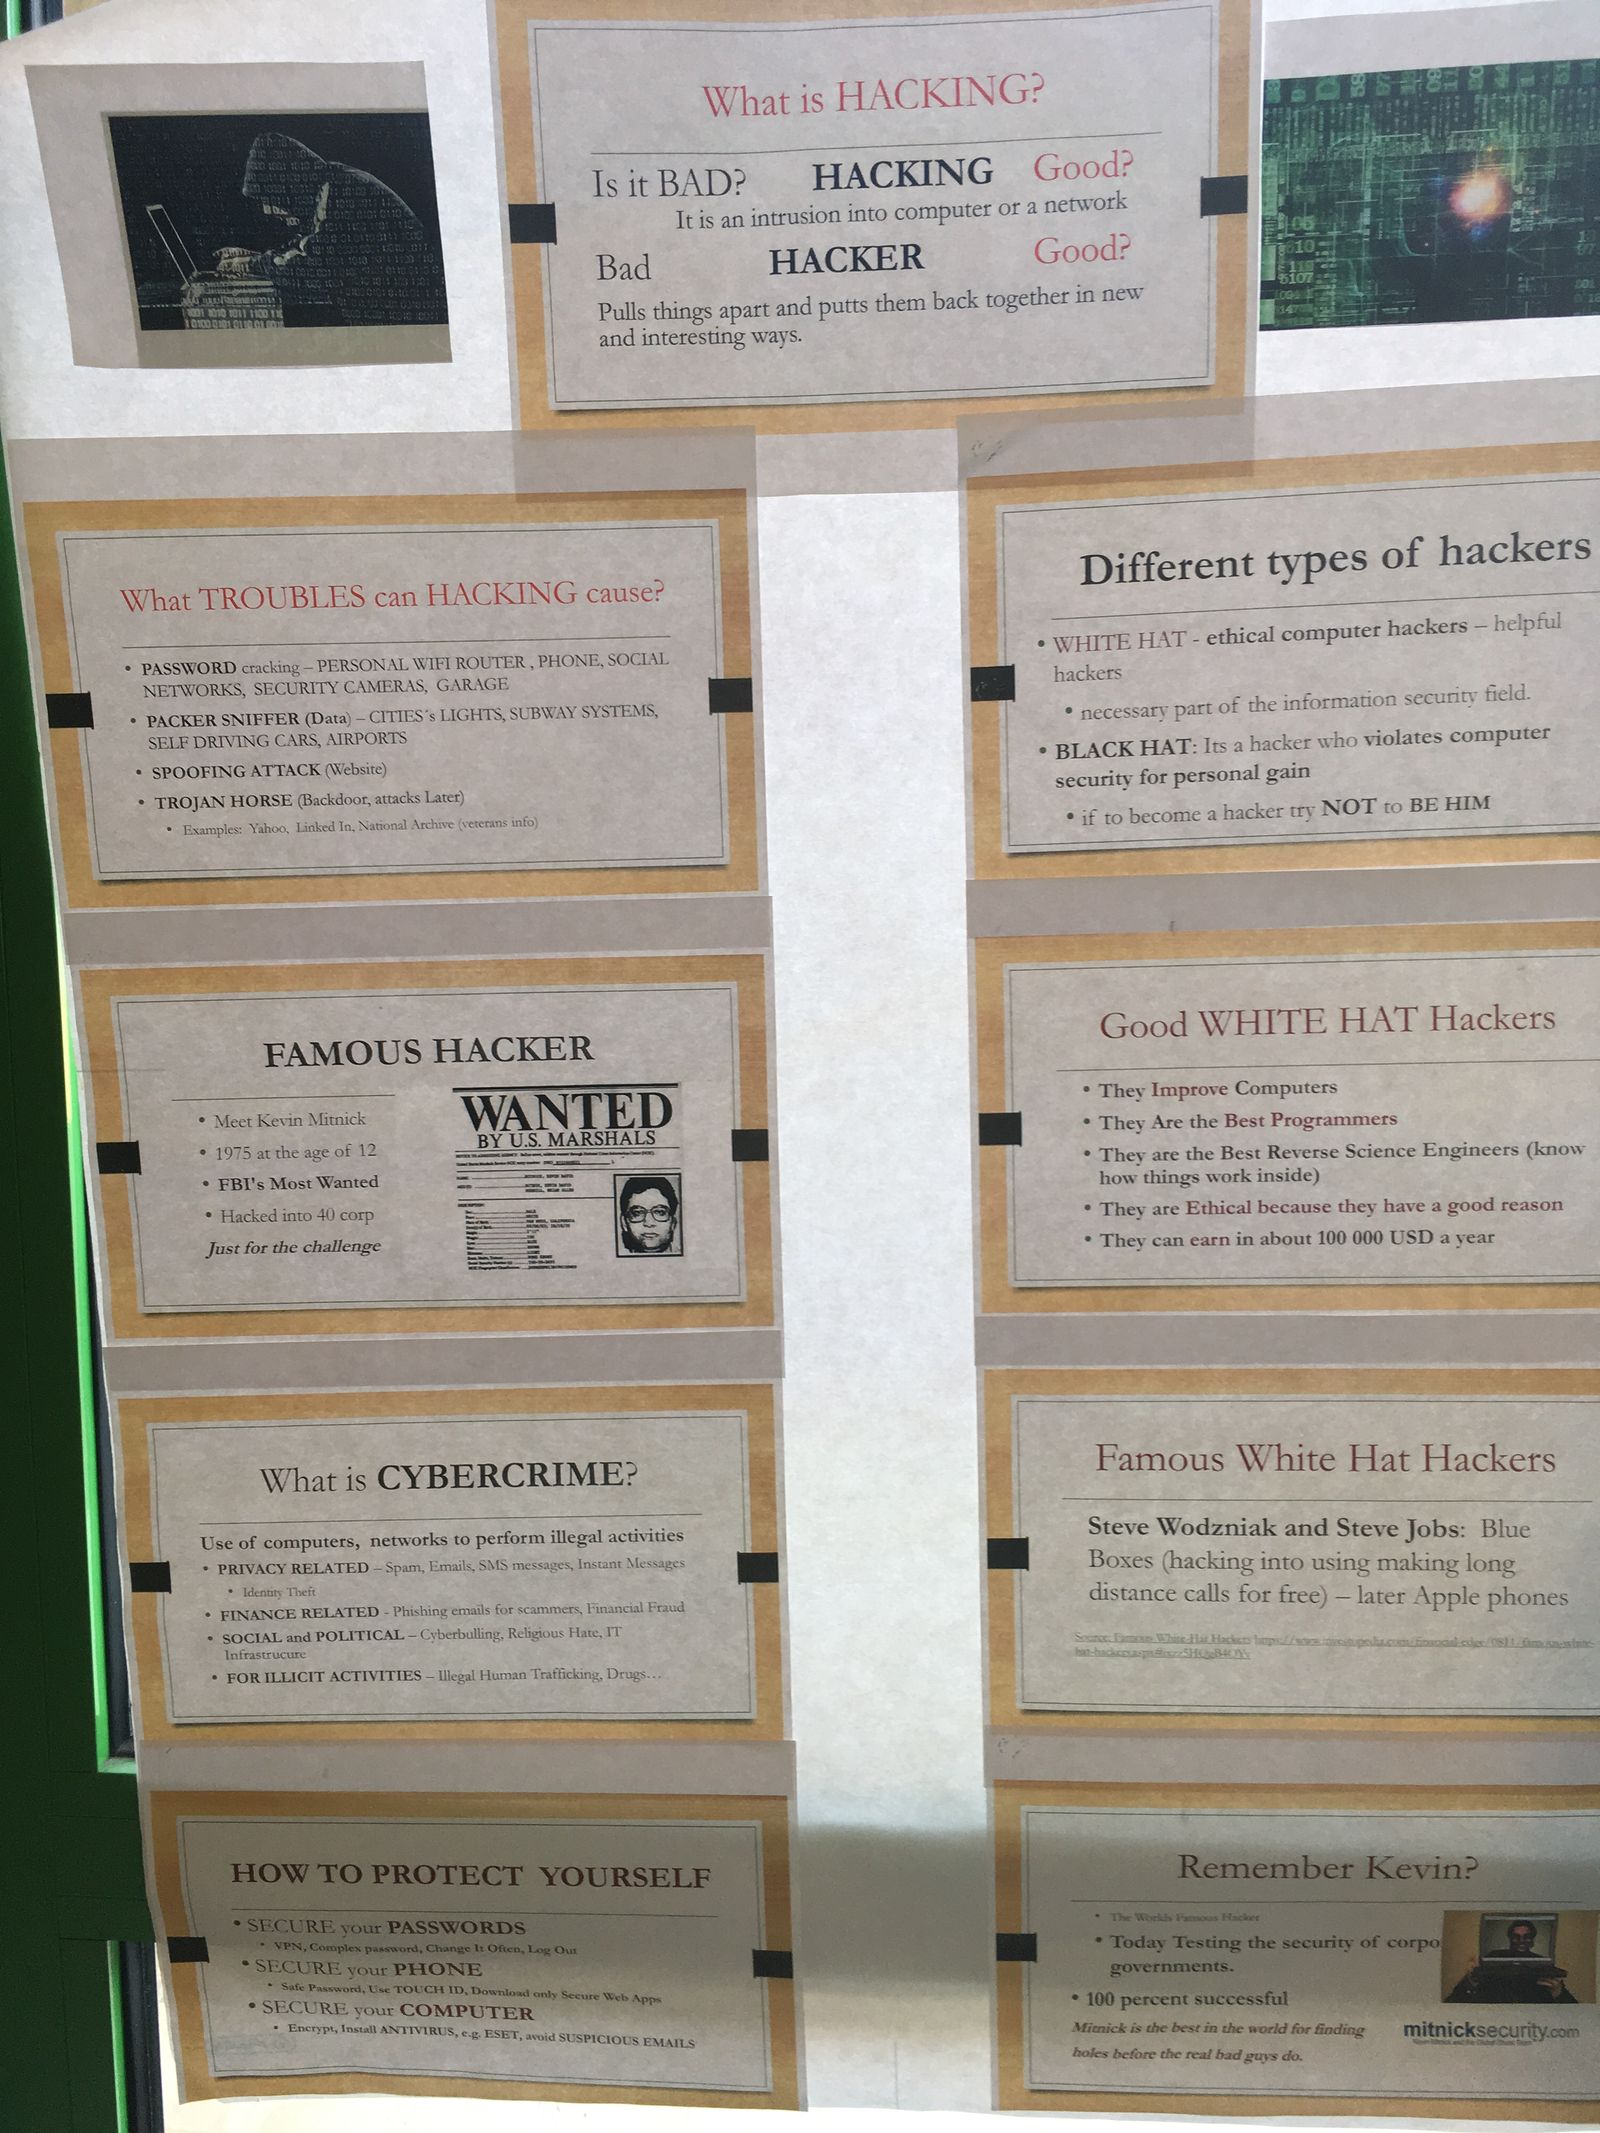 What is HACKING?
Is it BAD? HACKING Good?
It is an intrusion into computer or a network
Bad HACKER Good?
Pulls things apart and putts them back together in new
and interesting ways.
What TROUBLES can HACKING cause?
• PASSWORD cracking – PERSONAL WIFI ROUTER , PHONE, SOCIAL
NETWORKS, SECURITY CAMERAS, GARAGE
• PACKER SNIFFER (Data) – CITIES´s LIGHTS, SUBWAY SYSTEMS,
SELF DRIVING CARS, AIRPORTS
• SPOOFING ATTACK (Website)
• TROJAN HORSE (Backdoor, attacks Later)
• Examples: Yahoo, Linked In, National Archive (veterans info)
Different types of hackers
• WHITE HAT - ethical computer hackers – helpful
hackers
• necessary part of the information security field.
• BLACK HAT: Its a hacker who violates computer
security for personal gain
• if to become a hacker try NOT to BE HIM
FAMOUS HACKER
• Meet Kevin Mitnick
• 1975 at the age of 12
• FBI's Most Wanted
• Hacked into 40 corp
Just for the challenge
WANTED
BY U.S. MARSHALS
Good WHITE HAT Hackers
• They Improve Computers
• They Are the Best Programmers
• They are the Best Reverse Science Engineers (know
how things work inside)
• They are Ethical because they have a good reason
• They can earn in about 100 000 USD a year
What is CYBERCRIME?
Use of computers, networks to perform illegal activities
• PRIVACY RELATED – Spam, Emails, SMS messages, Instant Messages
• Identity Theft
• FINANCE RELATED - Phishing emails for scammers, Financial Fraud
• SOCIAL and POLITICAL – Cyberbulling, Religious Hate, IT
Infrastrucure
• FOR ILLICIT ACTIVITIES – Illegal Human Trafficking, Drugs…
Famous White Hat Hackers
Steve Wodzniak and Steve Jobs: Blue
Boxes (hacking into using making long
distance calls for free) – later Apple phones
Source: Famous White-Hat Hackers
HOW TO PROTECT YOURSELF
• SECURE your PASSWORDS
• VPN, Complex password, Change It Often, Log Out
• SECURE your PHONE
• Safe Password, Use TOUCH ID, Download only Secure Web Apps
• SECURE your COMPUTER
• Encrypt, Install ANTIVIRUS, e.g. ESET, avoid SUSPICIOUS EMAILS
Remember Kevin?
• The Worlds Famous Hacker
• Today Testing the security of corpo
governments.
• 100 percent successful
Mitnick is the best in the world for finding
holes before the real bad guys do.
mitnicksecurity.com